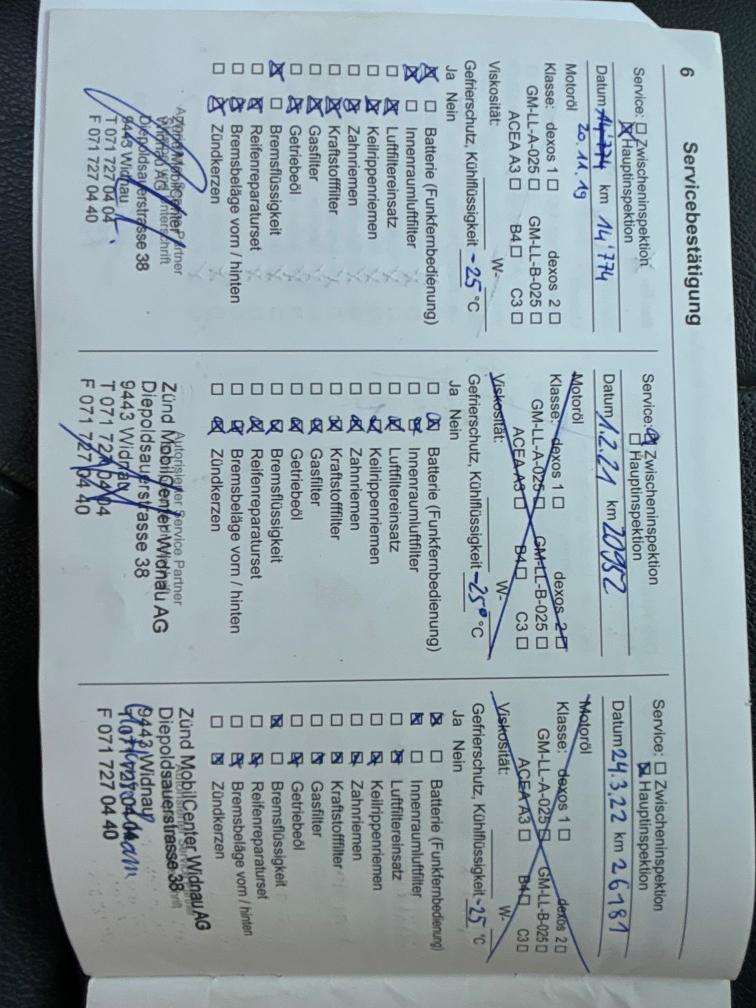 6
Servicebestätigung
Service: ☐ Zwischeninspektion
☒ Hauptinspektion
Datum 14'774 km 14'774
20.11.19
Motoröl
Klasse: dexos 1 ☐ dexos 2 ☐
GM-LL-A-025 ☐ GM-LL-B-025 ☐
ACEA A3 ☐ B4 ☐ C3 ☐
Viskosität: W-
Gefrierschutz, Kühlflüssigkeit -25 °C
Ja Nein
☒ ☐ Batterie (Funkfernbedienung)
☒ ☐ Innenraumluftfilter
☐ ☒ Luftfiltereinsatz
☐ ☒ Keilrippenriemen
☐ ☒ Zahnriemen
☐ ☒ Kraftstofffilter
☐ ☒ Gasfilter
☐ ☒ Getriebeöl
☒ ☐ Bremsflüssigkeit
☐ ☒ Reifenreparaturset
☐ ☒ Bremsbeläge vorn / hinten
☐ ☒ Zündkerzen
Zünd MobilCenter
Widnau AG
Diepoldsauerstrasse 38
9443 Widnau
T 071 727 04 04
F 071 727 04 40
Service: ☒ Zwischeninspektion
☐ Hauptinspektion
Datum 1.2.21 km 20952
Motoröl
Klasse: dexos 1 ☐ dexos 2 ☐
GM-LL-A-025 ☐ GM-LL-B-025 ☐
ACEA A3 ☐ B4 ☐ C3 ☐
Viskosität: W-
Gefrierschutz, Kühlflüssigkeit -25° °C
Ja Nein
☐ ☒ Batterie (Funkfernbedienung)
☐ ☒ Innenraumluftfilter
☐ ☒ Luftfiltereinsatz
☐ ☒ Keilrippenriemen
☐ ☒ Zahnriemen
☐ ☒ Kraftstofffilter
☐ ☒ Gasfilter
☐ ☒ Getriebeöl
☐ ☒ Bremsflüssigkeit
☐ ☒ Reifenreparaturset
☐ ☒ Bremsbeläge vorn / hinten
☐ ☒ Zündkerzen
Autorisierter Service Partner
Zünd MobilCenter Widnau AG
Diepoldsauerstrasse 38
9443 Widnau
T 071 727 04 04
F 071 727 04 40
Service: ☐ Zwischeninspektion
☒ Hauptinspektion
Datum 24.3.22 km 26181
Motoröl
Klasse: dexos 1 ☐ dexos 2 ☐
GM-LL-A-025 ☐ GM-LL-B-025 ☐
ACEA A3 ☐ B4 ☐ C3 ☐
Viskosität: W-
Gefrierschutz, Kühlflüssigkeit -25 °C
Ja Nein
☒ ☐ Batterie (Funkfernbedienung)
☒ ☐ Innenraumluftfilter
☐ ☒ Luftfiltereinsatz
☐ ☒ Keilrippenriemen
☐ ☒ Zahnriemen
☐ ☒ Kraftstofffilter
☐ ☒ Gasfilter
☐ ☒ Getriebeöl
☒ ☐ Bremsflüssigkeit
☐ ☒ Reifenreparaturset
☐ ☒ Bremsbeläge vorn / hinten
☐ ☒ Zündkerzen
Zünd MobilCenter Widnau AG
Diepoldsauerstrasse 38
9443 Widnau
F 071 727 04 40